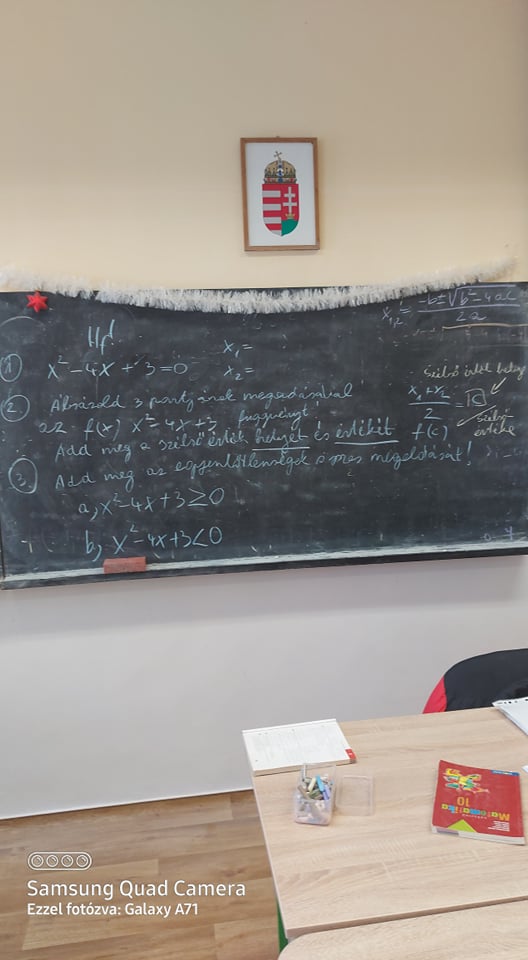 Hf!
x₁,₂ = (-b ± √(b² - 4ac)) / 2a
① x² - 4x + 3 = 0
x₁ =
x₂ =
② Ábrázold 3 pontjának megadásával
az f(x) x² - 4x + 3 függvényt!
Add meg a szélső érték helyét és értékét
szélső érték helye
(x₁ + x₂) / 2 = c
f(c)
szélső-
értéke
③ Add meg az egyenlőtlenségek megoldását!
a, x² - 4x + 3 ≥ 0
b, x² - 4x + 3 < 0
Matematika
10
Samsung Quad Camera
Ezzel fotózva: Galaxy A71